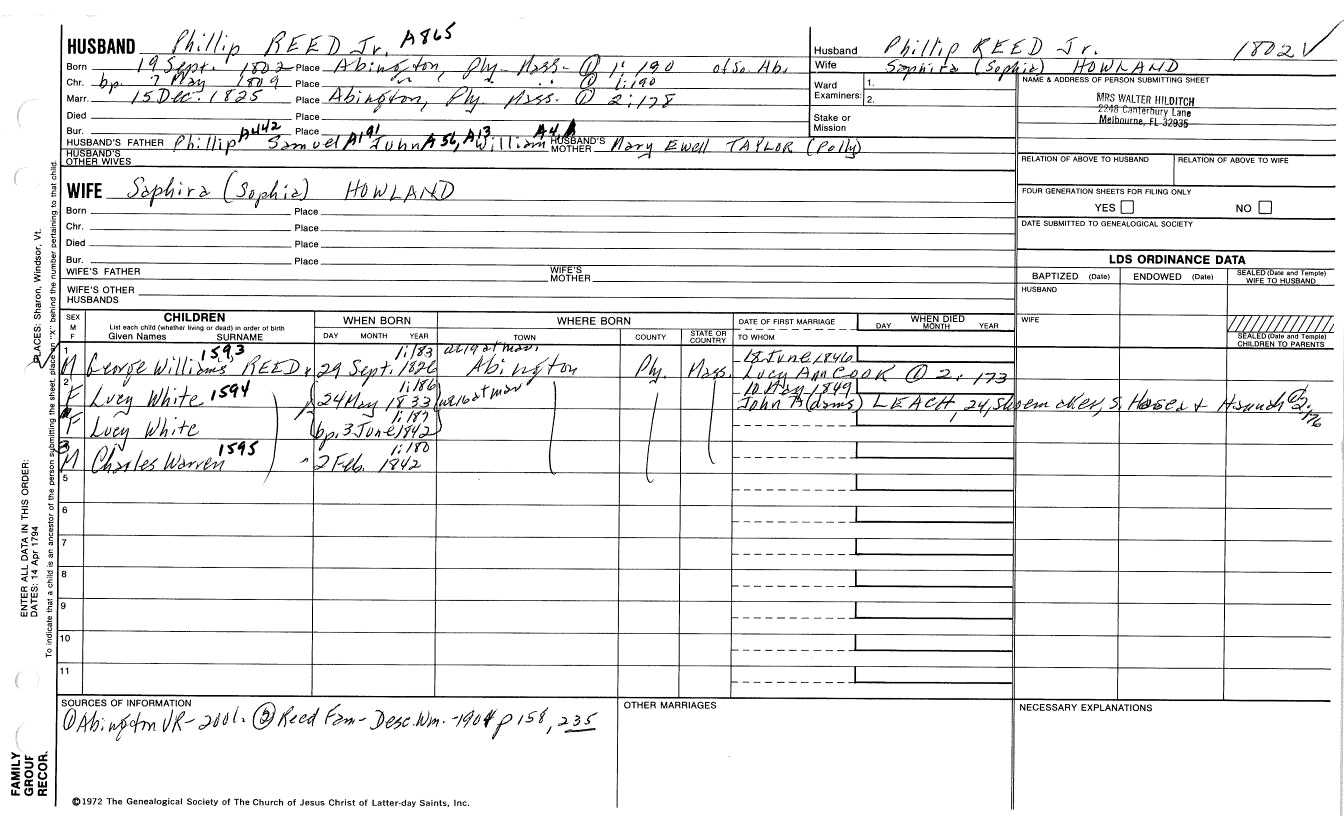 HUSBAND Phillip REED Jr. A865
Born 19 Sept. 1802 Place Abington, Ply. Mass. ① 1:190 of So. Ab.
Chr. bp. 7 May 1809 Place ① 1:190
Marr. 15 Dec. 1825 Place Abington, Ply Mass. ① 2:178
Died Place
Bur. Place
HUSBAND'S FATHER Phillip A442 Samuel A191 John A56, A13 William A4 HUSBAND'S MOTHER Mary Ewell TAYLOR (Polly)
HUSBAND'S OTHER WIVES
Husband Phillip REED Jr. 1802 V
Wife Saphira (Sophia) HOWLAND
Ward Examiners: 1.
2.
Stake or Mission
NAME & ADDRESS OF PERSON SUBMITTING SHEET
MRS WALTER HILDITCH
2248 Canterbury Lane
Melbourne, FL 32935
RELATION OF ABOVE TO HUSBAND RELATION OF ABOVE TO WIFE
FOUR GENERATION SHEETS FOR FILING ONLY
YES NO
DATE SUBMITTED TO GENEALOGICAL SOCIETY
WIFE Saphira (Sophia) HOWLAND
Born Place
Chr. Place
Died Place
Bur. Place
WIFE'S FATHER WIFE'S MOTHER
WIFE'S OTHER HUSBANDS
LDS ORDINANCE DATA
BAPTIZED (Date) ENDOWED (Date) SEALED (Date and Temple) WIFE TO HUSBAND
HUSBAND
WIFE
SEALED (Date and Temple) CHILDREN TO PARENTS
SEX M F
CHILDREN
List each child (whether living or dead) in order of birth
Given Names SURNAME
WHEN BORN
DAY MONTH YEAR
WHERE BORN
TOWN COUNTY STATE OR COUNTRY
DATE OF FIRST MARRIAGE
TO WHOM
WHEN DIED
DAY MONTH YEAR
1 1593 1:183 18 June 1846
M George Williams REED 29 Sept. 1826 Abington Ply. Mass. Lucy Ann COOK ② 2:173
2 1594 1:186 10 May 1849
F Lucy White 24 May 1833 John LEACH, 24, Shoemaker, S.
1:187
F Lucy White (bp. 3 June 1842)
3 1595 1:180
M Charles Warren 2 Feb. 1842
5
6
7
8
9
10
11
SOURCES OF INFORMATION
① Abington VR- 2001. ② Reed Fam- Desc. Wm. -1901 p 158, 235
OTHER MARRIAGES
NECESSARY EXPLANATIONS
©1972 The Genealogical Society of The Church of Jesus Christ of Latter-day Saints, Inc.
PLACES: Sharon, Windsor, Vt.
ENTER ALL DATA IN THIS ORDER:
DATES: 14 Apr 1794
To indicate that a child is an ancestor of the person submitting the sheet, place an "X" behind the number pertaining to that child.
FAMILY
GROUP
RECOR.